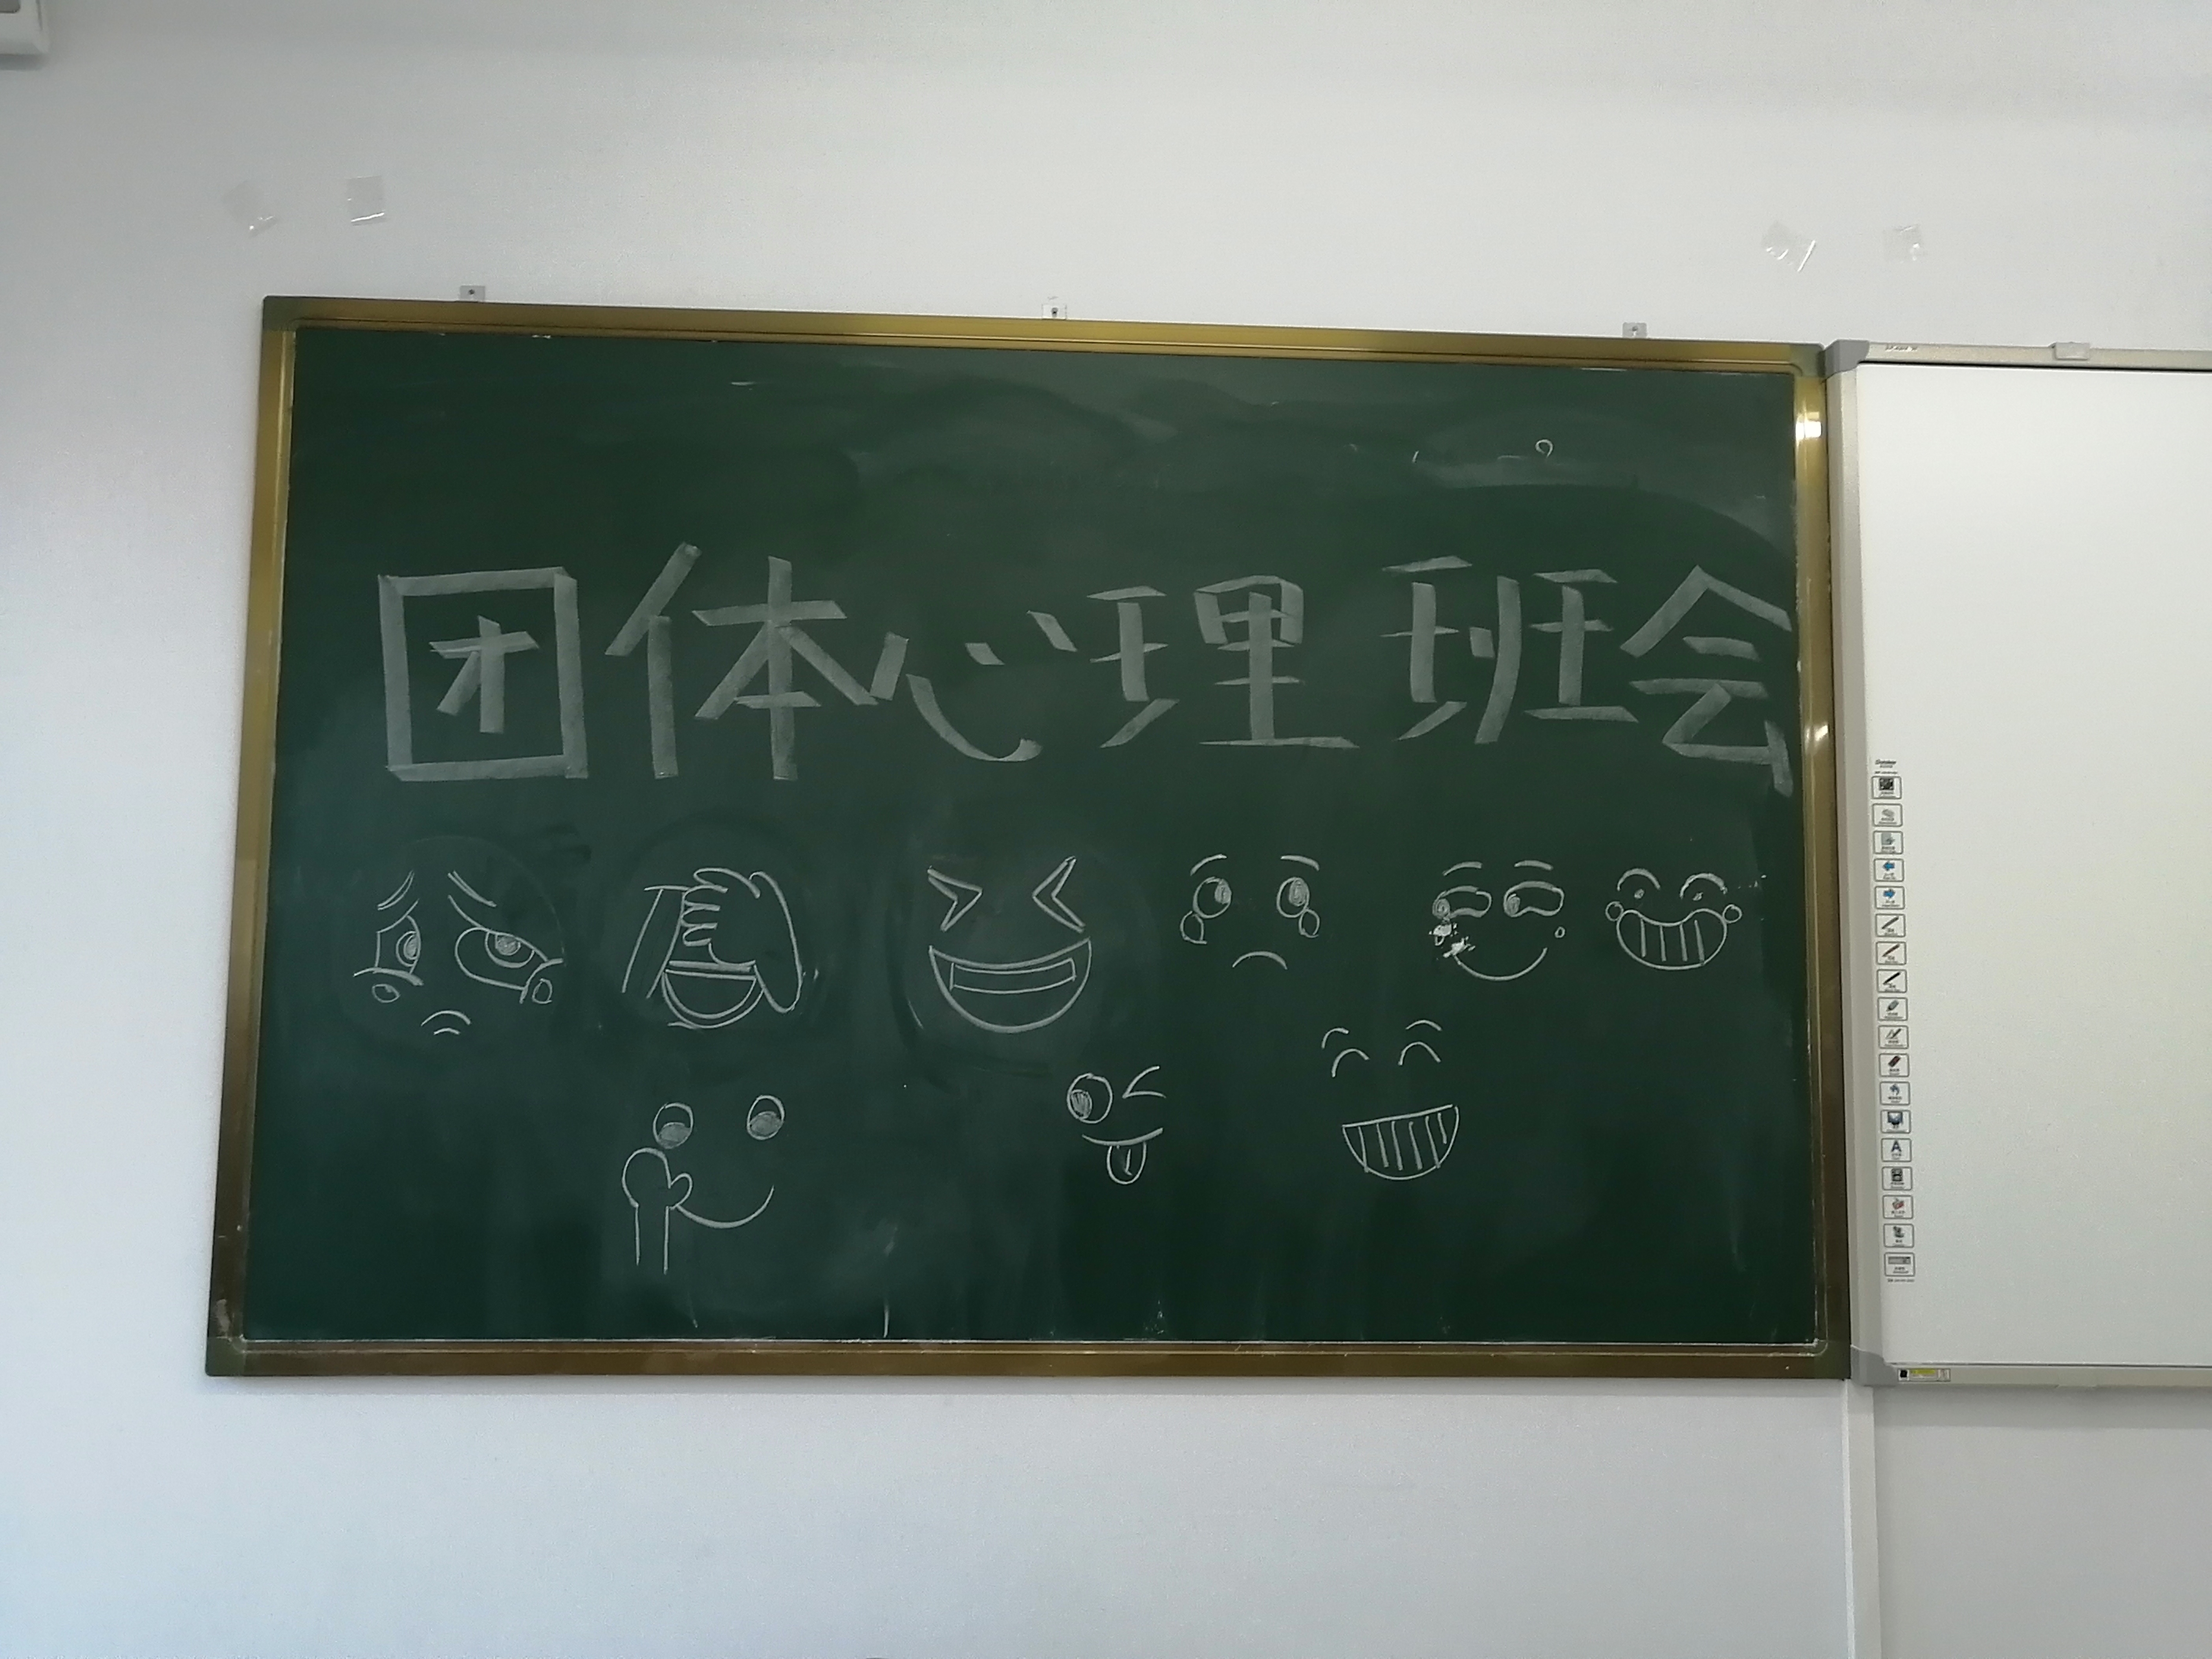 团体心理班会